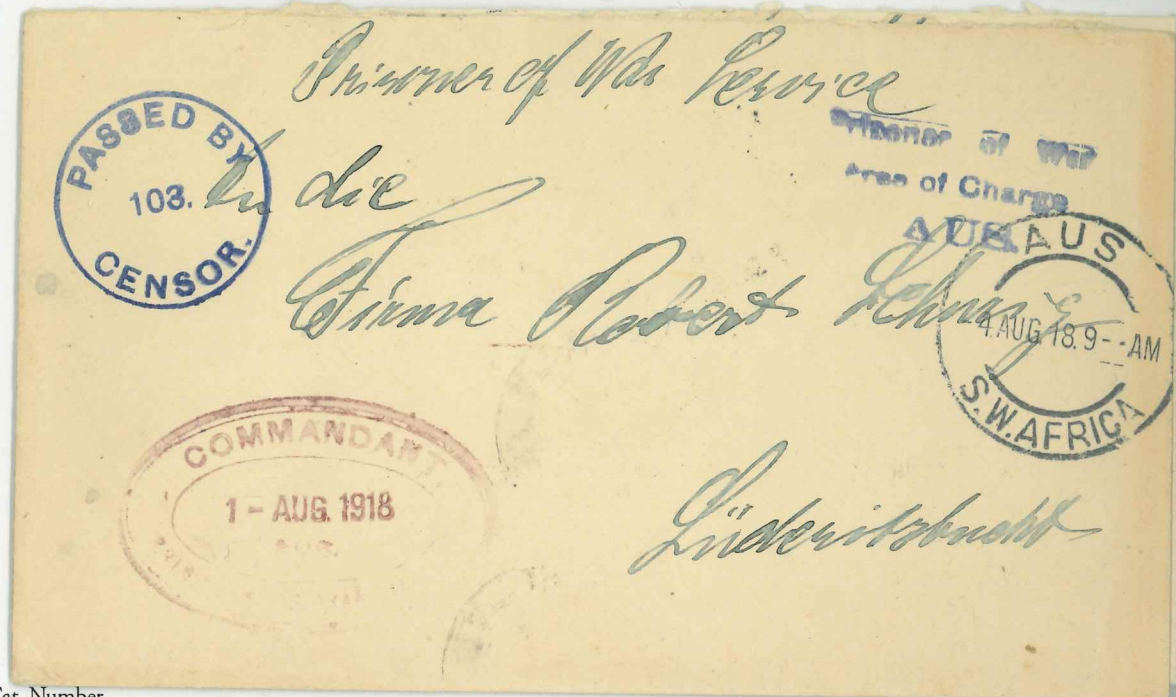 Prisoner of War Service
PASSED BY
103.
CENSOR.
Prisoner of War
Area of Charge
AUS.
An die
Firma Robert
AUS
4 AUG 18. 9-- AM
S.W. AFRICA
COMMANDANT
1 - AUG. 1918
AUS.
Lüderitzbucht
Cat. Number